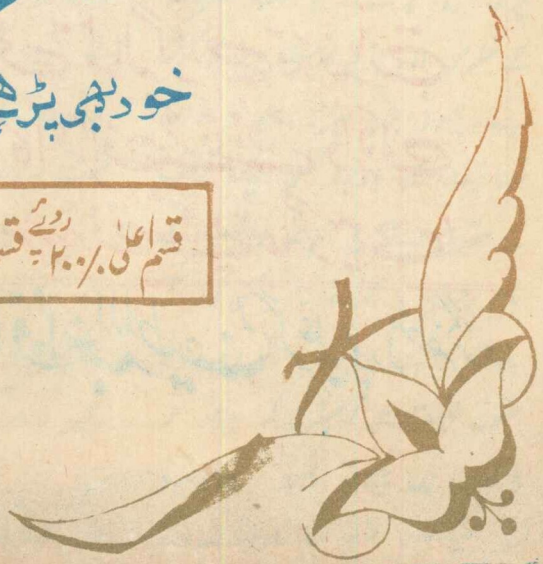 خود بھی پڑھ
قسم اعلیٰ ۲۰۰/۰ روپے قس